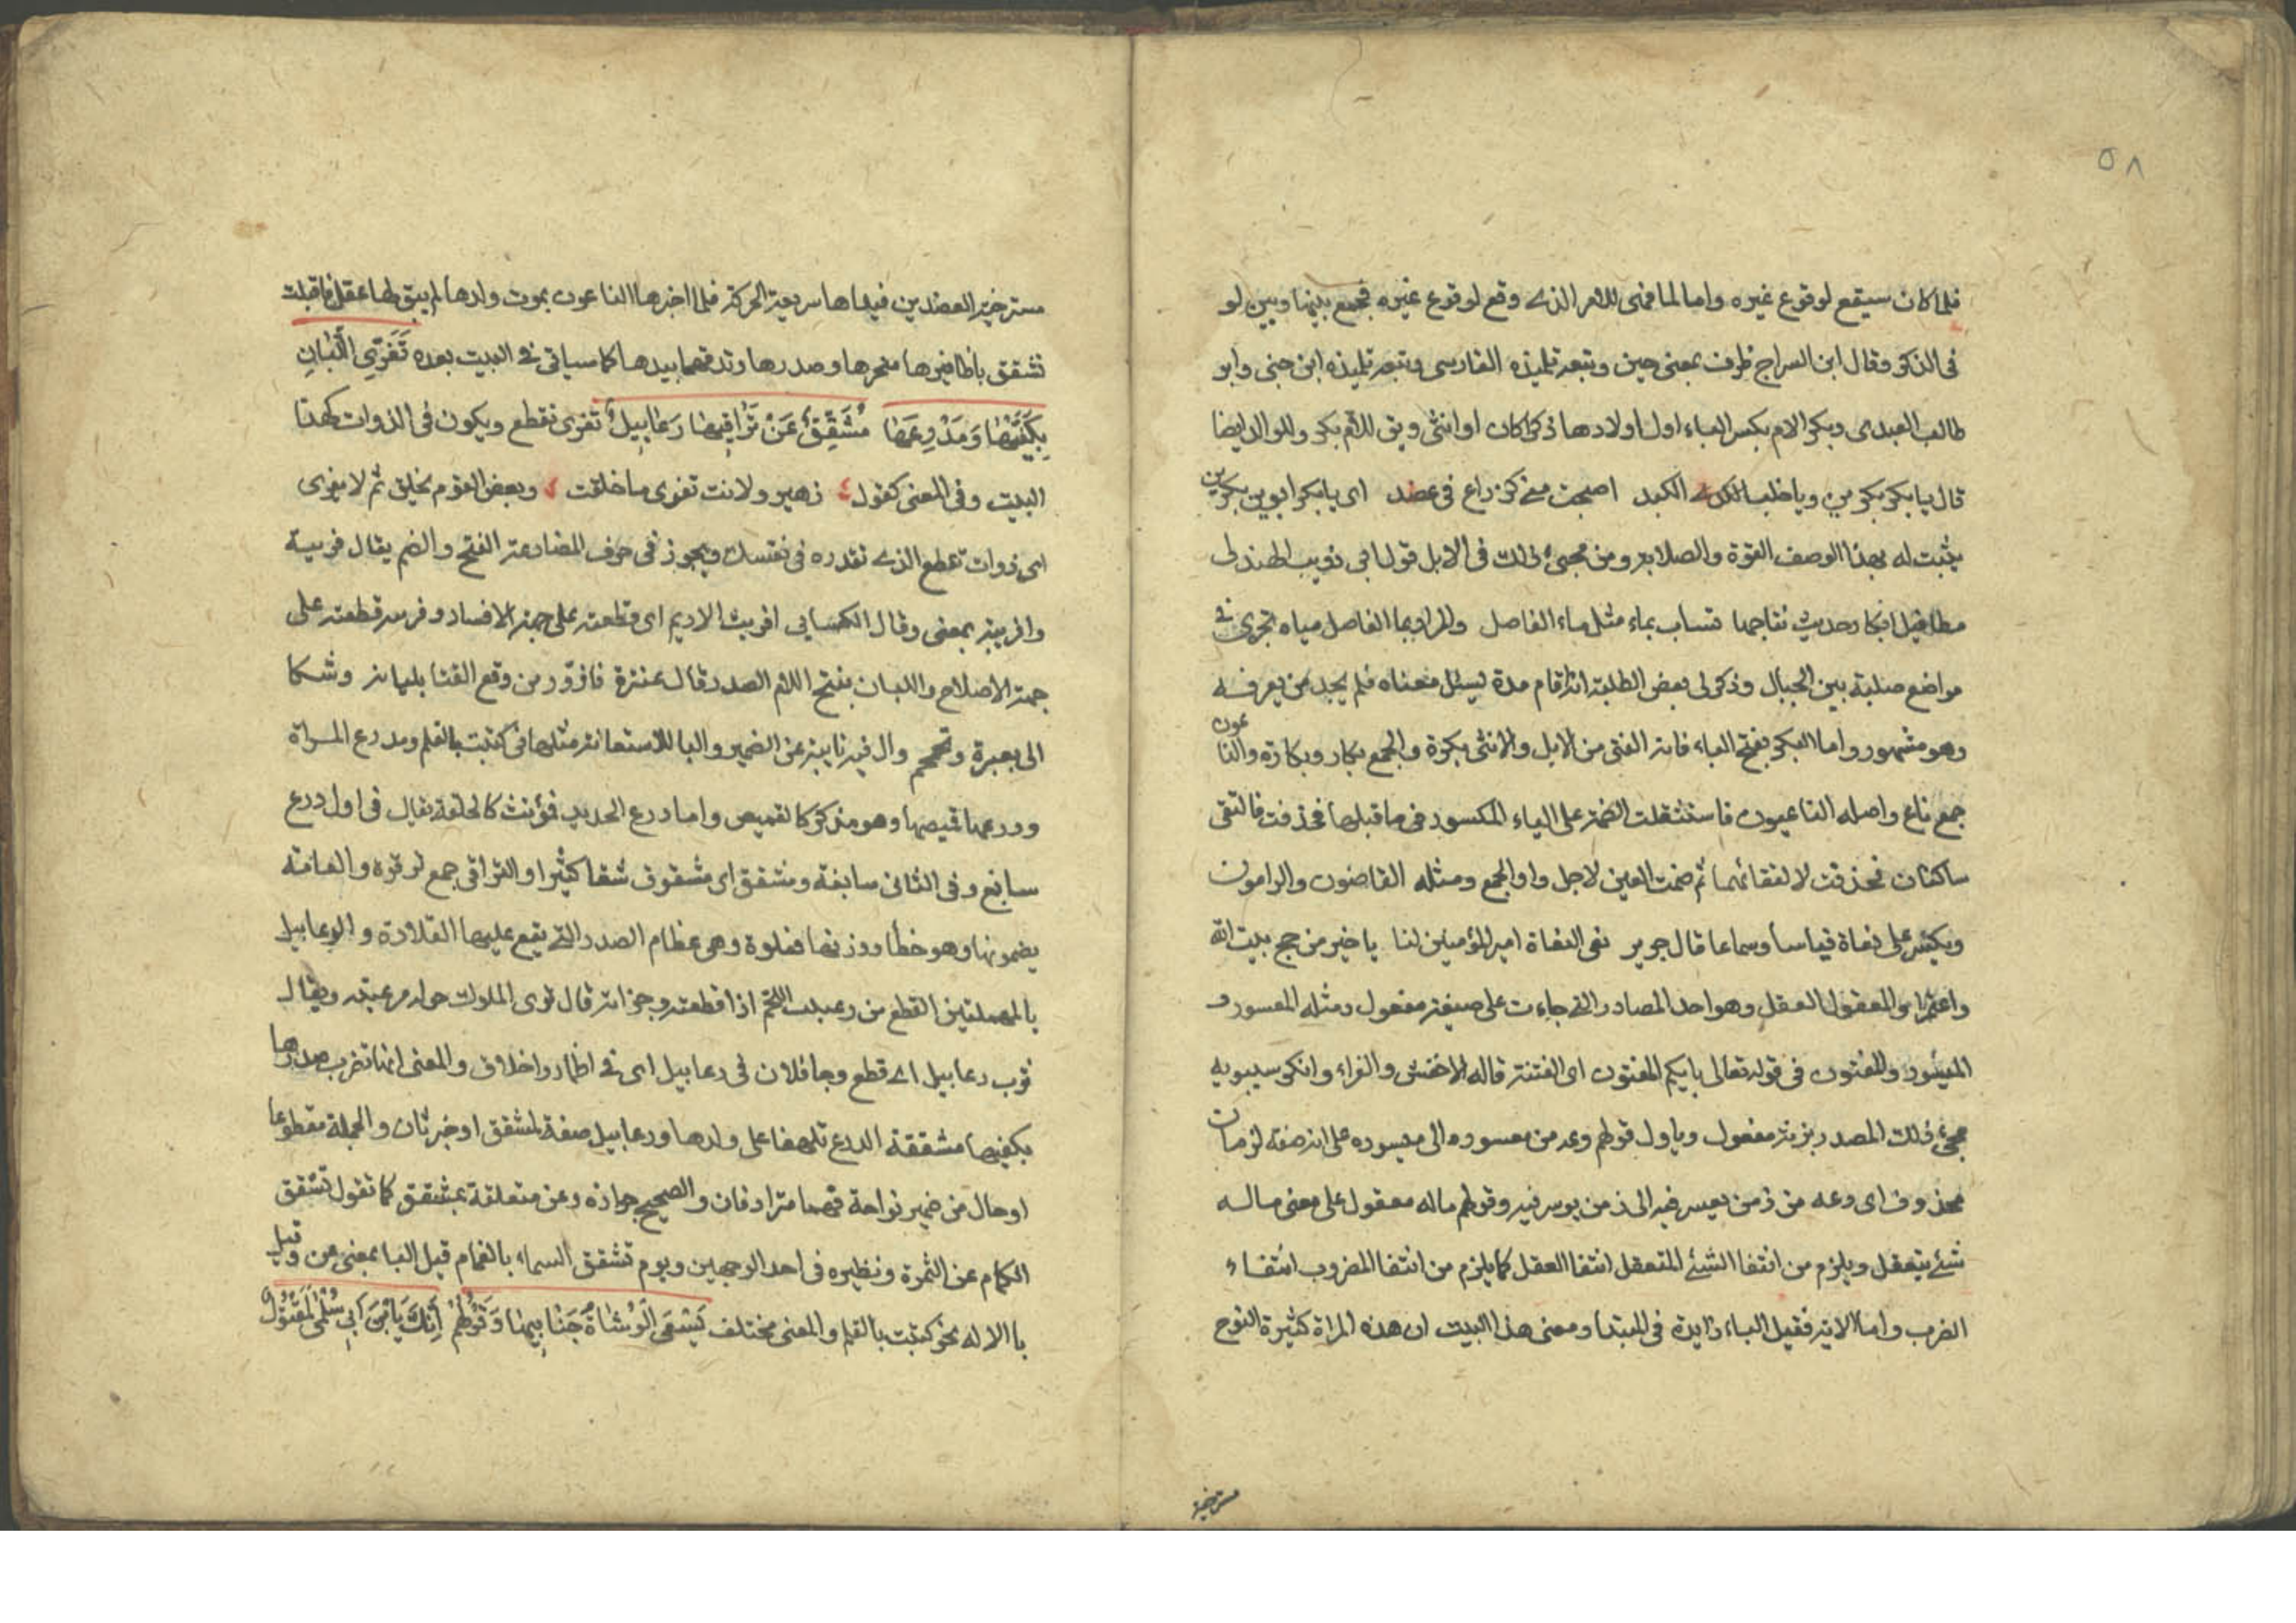 ٥٨
فلما كان سيقع لوقوع غيره واما لما فهى للامر الذى وقع لوقوع غيره فجمع بينها وبين لو
فى الذكر وقال ابن السراج ظرف بمعنى حين وتبعه تلميذه الفارسى وتبعه تلميذه ابن جنى وابو
طالب العبدى وبكر الام بكسر الباء اول اولادها ذكرا كان او انثى ويق للام بكر وللوالد ايضا
قال يا بكر بكرين ويا خلب الكبد اصبحت منى كذراع فى عضد اى يا بكر ابوين بكرين
يثبت له بهذا الوصف القوة والصلابه ومن مجئ ذلك فى الابل قول ابى ذويب الهذلى
مطافيل ابكار حديث نتاجها تساب بماء مثل ماء الفاصل والمراد بما الفاصل مياه تجرى فى
مواضع صلبة بين الجبال وذكر لى بعض الطلبة انه اقام مدة يسئل معناه فلم يجد من يعرفه
وهو مشهور واما البكر بفتح الباء فانه الفتى من الابل والانثى بكرة والجمع بكار وبكارة والناعون
جمع ناع واصله الناعيون فاستثقلت الضمة على الياء المكسور فى ما قبلها فحذفت فالتقى
ساكنان فحذفت لالتقائهما ثم ضمت العين لاجل واو الجمع ومثله القاضون والرامون
ويكسر على نعاة قياسا وسماعا قال جرير نعى النعاة امير المؤمنين لنا يا خير من حج بيت الله
واعتمرا والمعقول العقل وهو احد المصادر التى جاءت على صيغة مفعول ومثله المعسور و
الميسور والمفتون فى قوله تعالى بايكم المفتون اى الفتنة قاله الاخفش والفراء وانكر سيبويه
مجئ ذلك المصدر بزنة مفعول وياول قولهم دعه من معسوره الى ميسوره على انه صفة لزمان
محذوف اى دعه من زمن يعسر فيه الى زمن يوسر فيه وقولهم ماله معقول على معنى ماله
شئ يتعقل ويلزم من انتفا الشئ المتعقل انتفا العقل كما يلزم من انتفا المضروب انتفاء
الضرب واما الاية فقيل الباء زايدة فى المبتدا ومعنى هذا البيت ان هذه المراة كثيرة النوح
مسترخية
مسترخية العضدين فيداها سريعة الحركة فلما اخبرها الناعون بموت ولدها لم يبق لها عقل فاقبلت
تشقق باظافيرها منحرها وصدرها وتدقهما بيدها كما سياتى فى البيت بعده تَفْرِى اللُّبَانِ
بِكَفَّيْهَا وَمَدْرِعَهَا مُشَقَّقٌ عَنْ تَرَاقِيهَا رَعَابِيلُ تفرى تقطع ويكون فى الذوات كهذا
البيت وفى المعنى كقول زهير ولانت تفرى ما خلقت وبعض القوم يخلق ثم لا يفرى
اى ذوات تقطع الذى تقدره فى نفسك ويجوز فى حرف المضارعة الفتح والضم يقال فريته
وافريته بمعنى وقال الكسايى افريت الاديم اى قطعته على جهة الافساد وفريته قطعته على
جهة الاصلاح واللبان بفتح اللام الصدر قال عنترة فازورّ من وقع القنا بلبانه وشكا
الى بعبرة وتحمحم وال فيه نايبة عن الضمير والبا للاستعانة مثلها فى كتبت بالقلم ومدرع المراة
ودرعها قميصها وهو مذكر كالقميص واما درع الحديد فمؤنث كالحلقة يقال فى اول درع
سابغ وفى الثانى سابغة ومشقق اى مشقوق شقا كثيرا والتراقى جمع ترقوة والعامة
يضمونها وهو خطا ووزنها فعلوة وهى عظام الصدر التى يقع عليها القلادة والرعابيل
بالمهملتين القطع من رعبلت اللحم اذا قطعته وجزاته قال ترى الملوك حوله مرعبله ويقال
ثوب رعابيل اى قطع وجا فلان فى رعابيل اى فى اطمار واخلاق والمعنى انها تضرب صدرها
بكفيها مشققة الدرع تلهفا على ولدها ورعابيل صفة لمشقق او خبر ثان والجملة مقطوعا
او حال من ضمير نواحة فهما مترادفان والصحيح جوازه وعن متعلقة بمشقق كما تقول تشقق
الكمام عن الثمرة ونظيره فى احد الوجهين ويوم تشقق السماء بالغمام قيل البا بمعنى عن وقيل
با الاله نحو كتبت بالقلم والمعنى مختلف تَسْعَى الْوُشَاةُ جَنَابَيْهَا وَقَوْلُهُمْ إِنَّكَ يَابْنَ أَبِى سُلْمَى لَمَقْتُولُ